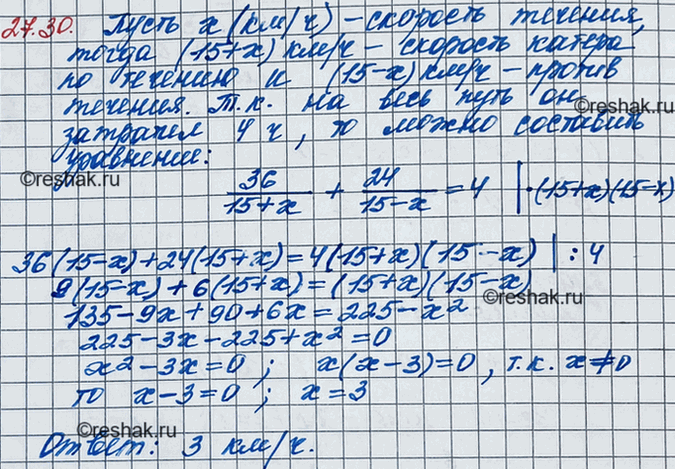 27.30. Пусть x (км/ч) – скорость течения,
тогда (15+x) км/ч – скорость катера
по течению и (15-x) км/ч – против
течения. Т.к. на весь путь он
©reshak.ru
затратил 4 ч, то можно составить
уравнение:
©reshak.ru
36/(15+x) + 24/(15-x) = 4 | ·(15+x)(15-x)
36(15-x)+24(15+x)=4(15+x)(15-x) | :4
9(15-x)+6(15+x)=(15+x)(15-x)
©reshak.ru
135-9x+90+6x=225-x²
225-3x-225+x²=0
x²-3x=0; x(x-3)=0, т.к. x≠0
то x-3=0; x=3
©reshak.ru
Ответ: 3 км/ч.